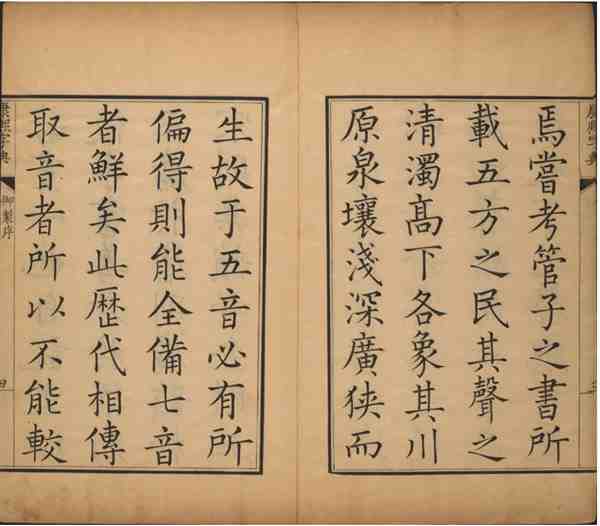 焉嘗考管子之書所
載五方之民其聲之
清濁髙下各象其川
原泉壤淺深廣狹而
生故于五音必有所
偏得則能全備七音
者鮮矣此歷代相傳
取音者所以不能較
康熙字典
御製序